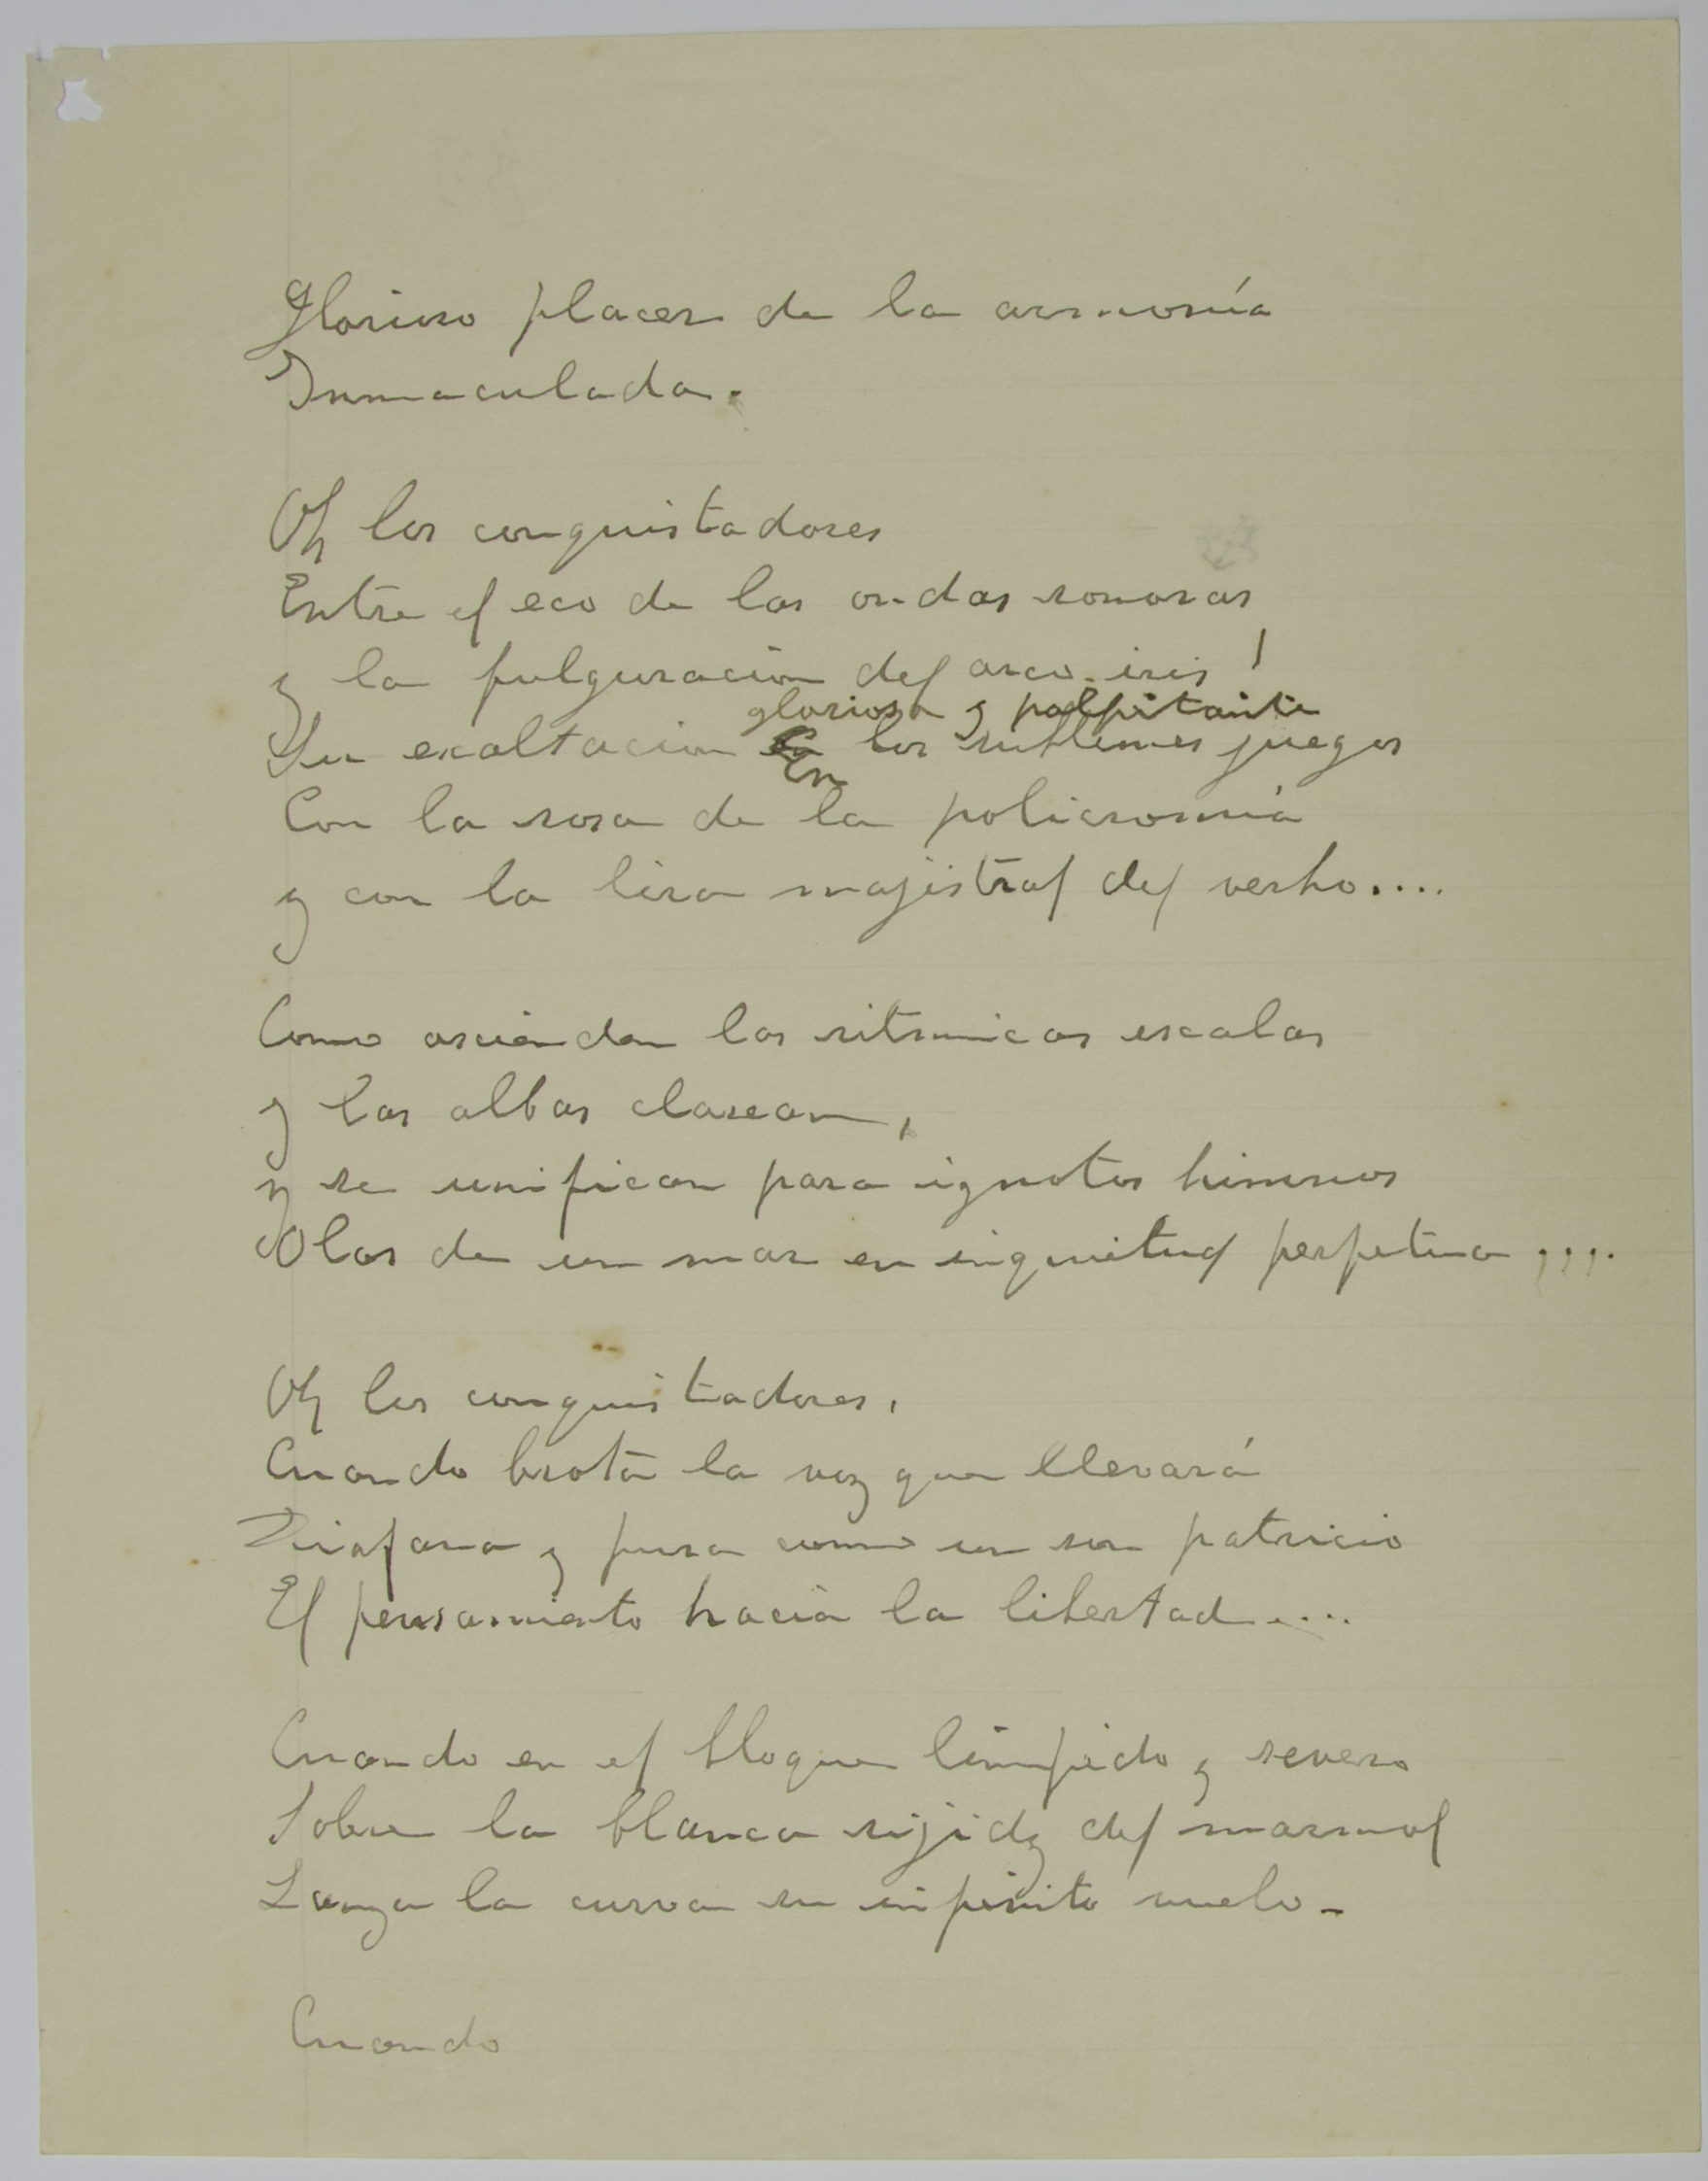 Glorioso placer de la armonía
Inmaculada.
Oh los conquistadores
Entre el eco de las ondas sonoras
y la fulguración del arco-iris!
gloriosa y palpitante
Su exaltacion En los sublimes juegos
Con la rosa de la policromía
y con la lira majistral del verbo....
Como ascienden las ritmicas escalas
y las albas clarean,
y se unifican para ignotos himnos
Olas de un mar en inquietud perpetua ....
Oh los conquistadores,
Cuando brota la voz que llevará
Diafana y pura como un son patricio
El pensamiento hacia la libertad....
Cuando en el bloque limpido y severo
Sobre la blanca rijidez del marmol
Lanza la curva su infinito vuelo-
Cuando